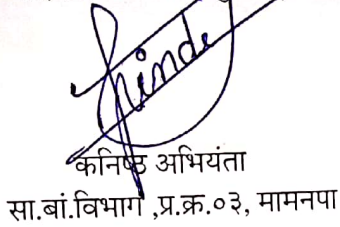 कनिष्ठ अभियंता
सा.बां.विभाग ,प्र.क्र.०३, मामनपा